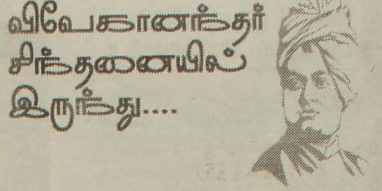 விவேகானந்தர்
சிந்தனையில்
இருந்து....